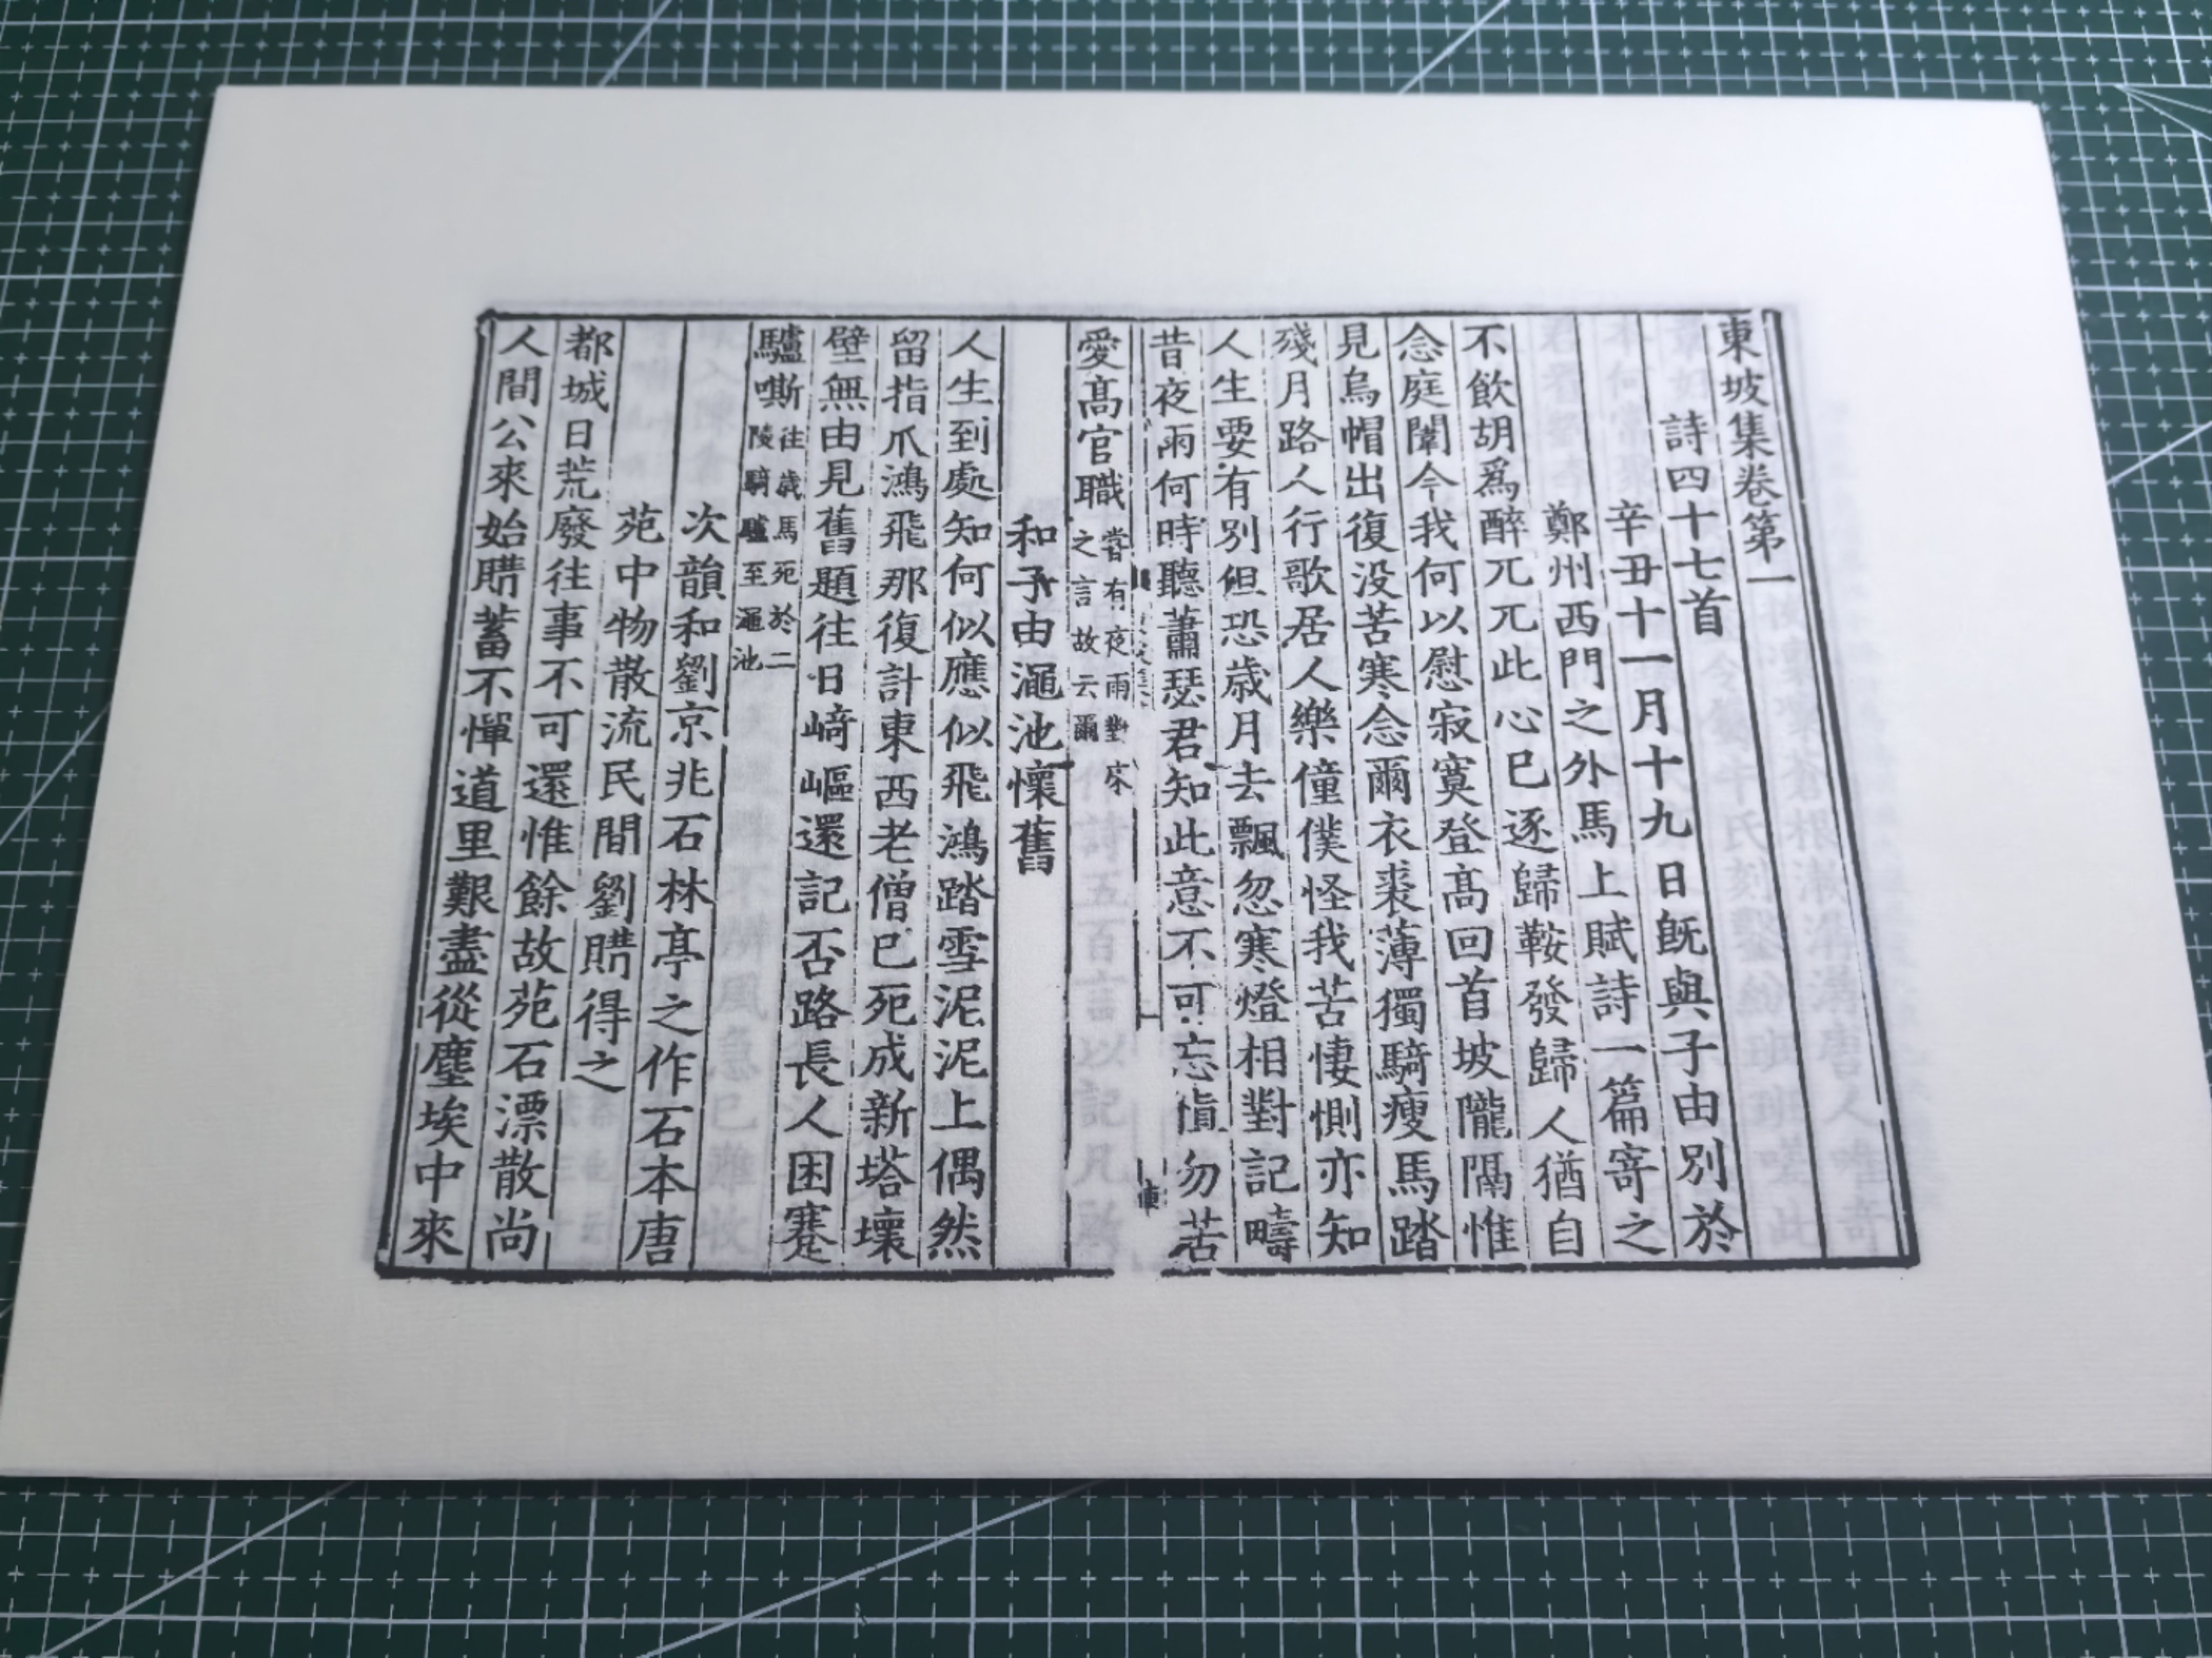 東坡集卷第一
詩四十七首
辛丑十一月十九日旣與子由別於
鄭州西門之外馬上賦詩一篇寄之
不飲胡爲醉兀兀此心已逐歸鞍發歸人猶自
念庭闈今我何以慰寂寞登高回首坡隴隔惟
見烏帽出復没苦寒念爾衣裘薄獨騎瘦馬踏
殘月路人行歌居人樂僮僕怪我苦悽惻亦知
人生要有別但恐歲月去飄忽寒燈相對記疇
昔夜雨何時聽蕭瑟君知此意不可忘愼勿苦
愛高官職嘗有夜雨對床
之言故云爾
和子由澠池懷舊
人生到處知何似應似飛鴻踏雪泥泥上偶然
留指爪鴻飛那復計東西老僧已死成新塔壞
壁無由見舊題往日崎嶇還記否路長人困蹇
驢嘶往歲馬死於二
陵騎驢至澠池
次韻和劉京兆石林亭之作石本唐
苑中物散流民間劉購得之
都城日荒廢往事不可還惟餘故苑石漂散尚
人間公來始購蓄不憚道里艱盡從塵埃中來